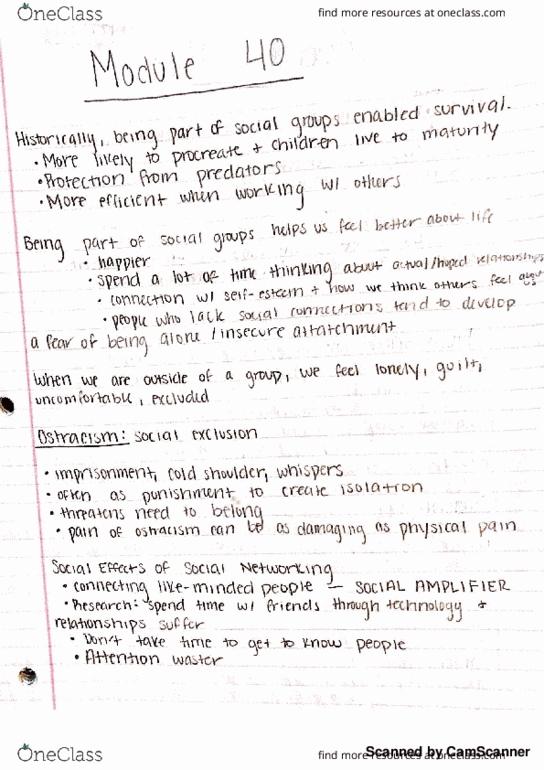 OneClass
find more resources at oneclass.com
Module 40
Historically, being part of social groups enabled survival.
• More likely to procreate + children live to maturity
• Protection from predators
• More efficient when working w/ others
Being part of social groups helps us feel better about life
• happier
• spend a lot of time thinking about actual/hoped relationships
• connection w/ self-esteem + how we think others feel about
• people who lack social connections tend to develop
a fear of being alone / insecure attatchment
When we are outside of a group, we feel lonely, guilt,
uncomfortable, excluded
Ostracism: social exclusion
• imprisonment, cold shoulder, whispers
• often as punishment to create isolation
• threatens need to belong
• pain of ostracism can be as damaging as physical pain
Social Effects of Social Networking
• connecting like-minded people — SOCIAL AMPLIFIER
• Research: spend time w/ friends through technology +
relationships suffer
• Don't take time to get to know people
• Attention waster
OneClass
find more resources at oneclass.com
Scanned by CamScanner